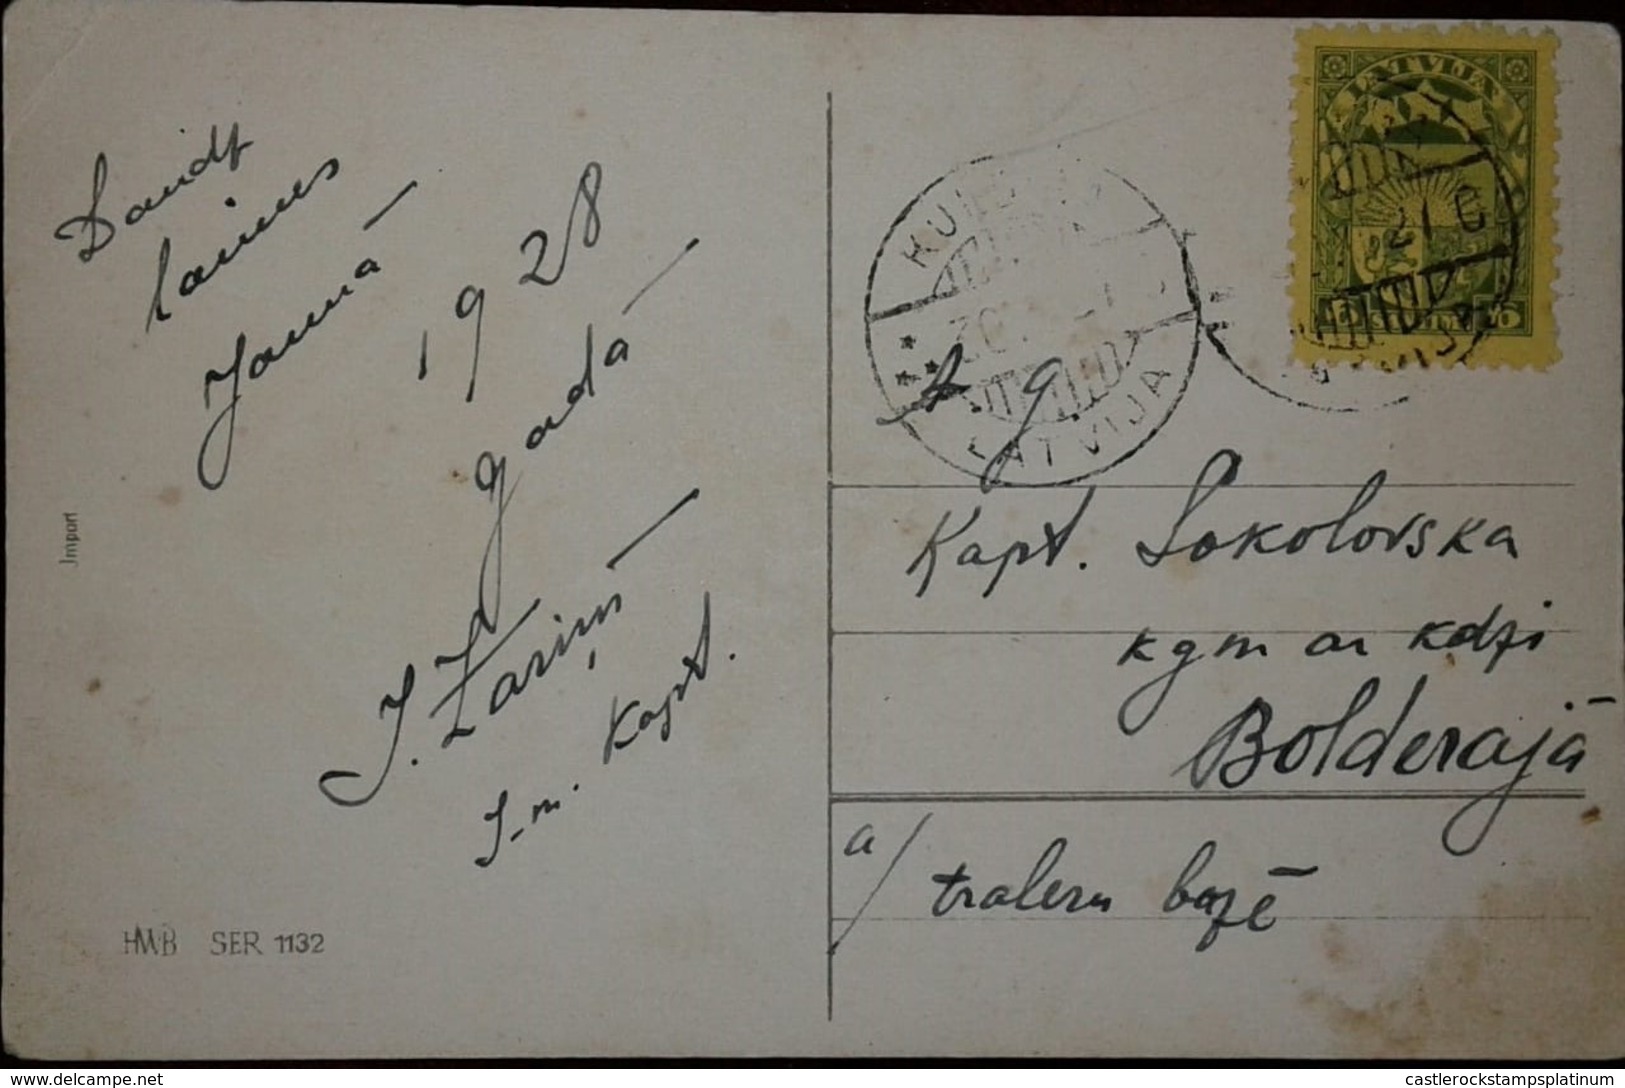 Daudz
laimes
Jaunā
1928
gadā
J. Zariņš
J-m. Kapt.
Import
HWB SER 1132
LATVIJA
21
LATVIJA
A. g.
Kapt. Sokolovska
kgm ar kdzi
Bolderajā
a/ traleru bazē
castlerockstampsplatinum